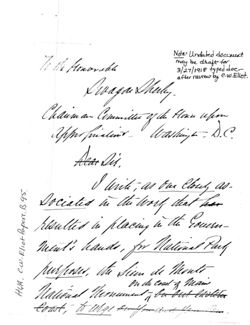 Note: Undated document
may be draft for
3/27/1918 typed doc-
after review by C.W. Eliot.
To the Honorable
Swagar Sherley
Chairman Committee of the House upon
Appropriations. Washington - D.C.
Dear Sir.
I write, as one closely as-
sociated in the work that has
resulted in placing in the Govern-
ment's hands, for National Park
purposes, the Sieur de Monts
on the coast of Maine
National Monument
to urge
HUA. C.W. Eliot Papers. B. 95